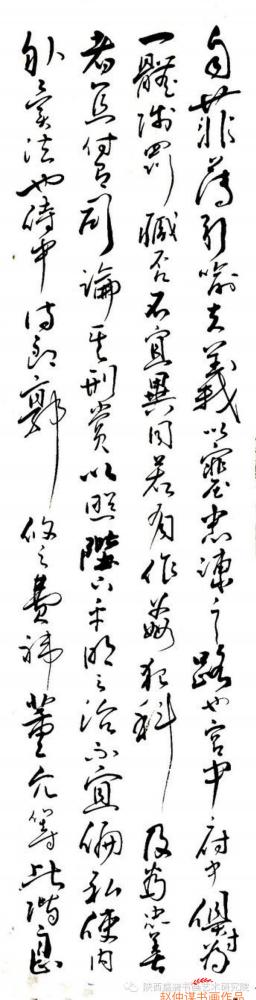 自菲薄引喻失義以塞忠諫之路也宮中府中俱為
一體陟罰臧否不宜異同若有作姦犯科及為忠善
者宜付有司論其刑賞以照陛下平明之治不宜偏私使内
外異法也侍中侍郎郭攸之費禕董允等此皆良
陕西 书画艺术研究院
赵仲谋书画作品